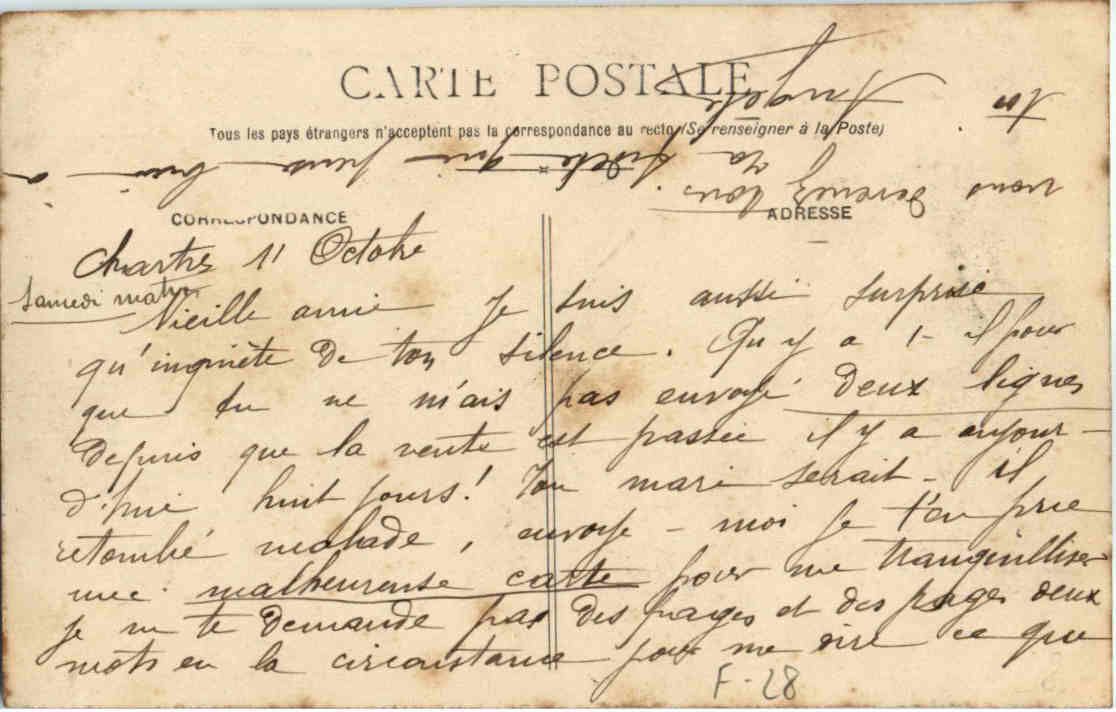 CARTE POSTALE
Tous les pays étrangers n'acceptent pas la correspondance au recto (Se renseigner à la Poste)
CORRESPONDANCE
ADRESSE
Chartres 11 Octobre
Samedi matin
Vieille amie je suis aussi surprise
qu'inquiète de ton silence. Qu'y a t-il pour
que tu ne m'ais pas envoyé deux lignes
depuis que la vente est passée il y a aujour-
d'hui huit jours! Ton mari serait-il
retombé malade, envoye-moi je t'en prie
une malheureuse carte pour me tranquilliser
je ne te demande pas des pages et des pages deux
mots en la circonstance pour me dire ce que
vous devenez tous.
Ta fidèle qui pense bien à
toi. Angèle
F-28